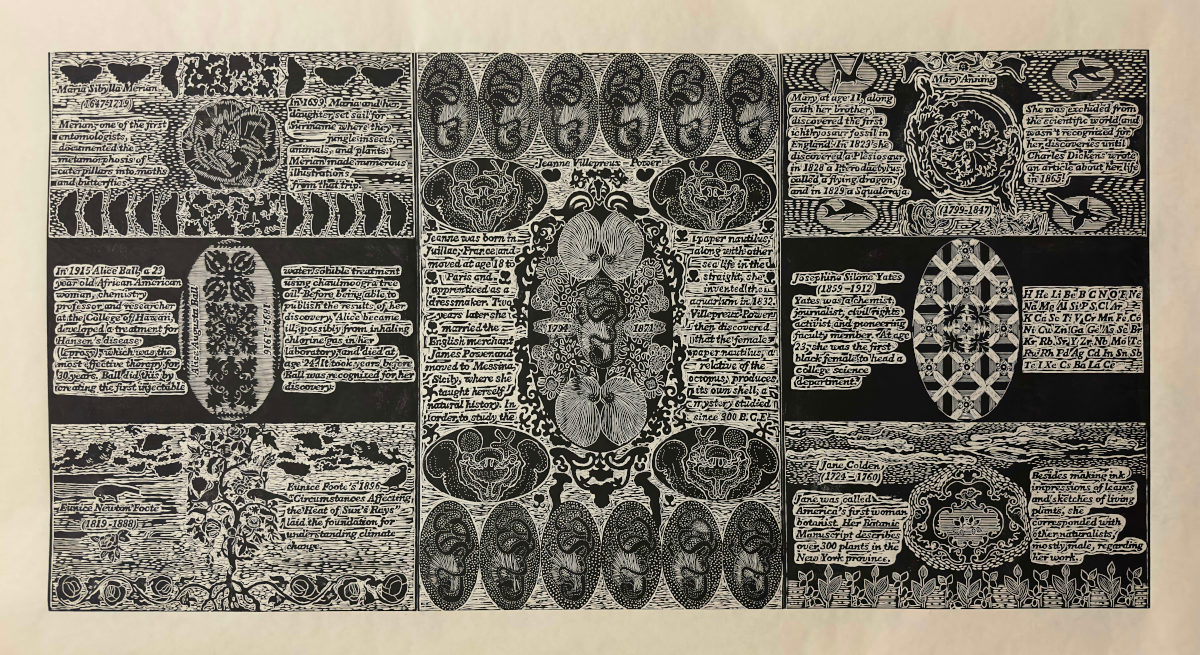 Maria Sibylla Merian
(1647-1717)
Merian, one of the first
entomologists,
documented the
metamorphosis of
caterpillars into moths
and butterflies.
In 1699, Maria and her
daughter, set sail for
Suriname where they
insects,
animals, and plants.
Merian made numerous
illustrations
from that trip.
In 1915 Alice Ball, a 23
year old African American
woman, chemistry
professor and researcher
at the College of Hawaii
developed a treatment for
Hansen's disease
(leprosy), which was the
most effective therapy for
30 years. Ball did this by
creating the first injectable
Alice Augusta Ball
1892-1916
water soluble treatment
using chaulmoogra tree
oil. Before being able to
publish the results of her
discovery, Alice became
ill, possibly from inhaling
chlorine gas in her
laboratory, and died at
age 24. It took years, before
Ball was recognized for her
discovery.
Eunice Newton Foote
(1819-1888)
Eunice Foote's 1856
"Circumstances Affecting
the Heat of Sun's Rays"
laid the foundation for
understanding climate
change.
Jeanne Villepreux-Power
Jeanne was born in
Juillac, France and
moved at age 18 to
Paris and
apprenticed as a
dressmaker. Two
years later she
married the
English merchant
James Power and
moved to Messina,
Sicily, where she
taught herself
natural history. In
order to study the
1794 1871
paper nautilus,
along with other
sea life in the
straight, she
invented the
aquarium in 1832.
Villepreux-Power
then discovered
that the female
paper nautilus, a
relative of the
octopus, produces
its own shell; a
mystery studied
since 300 B.C.E.
Mary Anning
Mary at age 11, along
with her brother,
discovered the first
ichthyosaur fossil in
England. In 1823 she
discovered a Plesiosaur
in 1828 a Pterodactylus
called a flying dragon,
and in 1829 a Squaloraja.
She was excluded from
the scientific world and
wasn't recognized for
her discoveries until
Charles Dickens wrote
an article about her life
in 1865.
(1799-1847)
Josephine Silone Yates
(1859-1912)
Yates was a chemist,
journalist, civil rights
activist and pioneering
faculty member. At age
she was the first
black female to head a
college science
department.
H He Li Be B C N O F Ne
Na Mg Al Si P S Cl Ar K
Ca Sc Ti V Cr Mn Fe Co
Ni Cu Zn Ga Ge As Se Br
Kr Rb Sr Y Zr Nb Mo Tc
Ru Rh Pd Ag Cd In Sn Sb
Te I Xe Cs Ba La Ce
Jane Colden
(1724-1760)
Jane was called
America's first woman
botanist. Her Botanic
Manuscript describes
over 300 plants in the
New York province.
Besides making ink
impressions of leaves
and sketches of living
plants, she
corresponded with
other naturalists,
mostly male, regarding
her work.